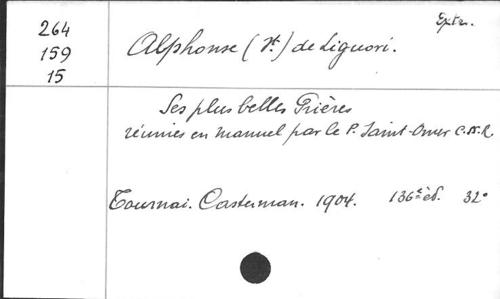 264
159
15
Alphonse (St.) de Liguori.
Ses plus belles Prières
réunies en manuel par le P. Saint-Omer C.SS.R.
Tournai. Casterman. 1904. 136e éd. 32°